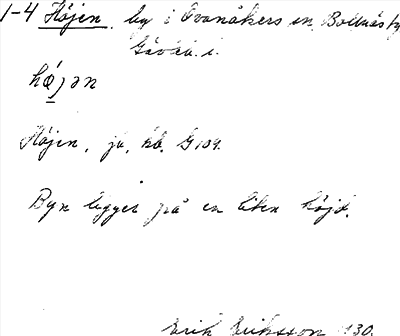 1-4 Höjen by i Ovanåkers sn, Bollnäs
Gävleb. l.
Höjen, jb, kb. G 109.
Byn ligger på en liten höjd.
Erik Eriksson 130.